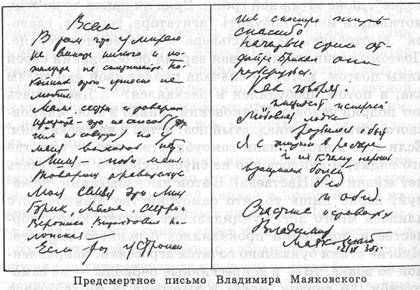 Всем
В том что умираю
не вините никого и по-
жалуйста не сплетничайте. По-
койник этого ужасно не
любил.
Мама, сестры и товарищи
простите - это не способ (дру-
гим не советую) но у
меня выходов нет.
Лиля - люби меня.
Товарищ правительство
моя семья это Лиля
Брик, мама, сестры и
Вероника Витольдовна По-
лонская -
Если ты устроишь
им сносную жизнь
спасибо
Начатые стихи от-
дайте Брикам они
разберутся.
Как говорят
инцидент исперчен
Любовная лодка
разбилась о быт
Я с жизнью в расчете
и не к чему перечень
взаимных болей
бед
и обид.
Счастливо оставаться
Владимир
Маяковский
Предсмертное письмо Владимира Маяковского